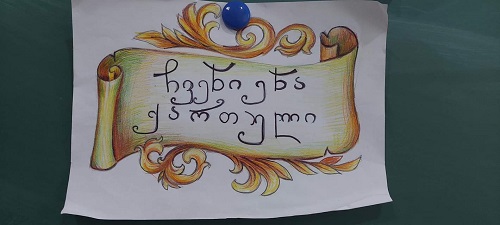 ჩვენი ენა
ქართული